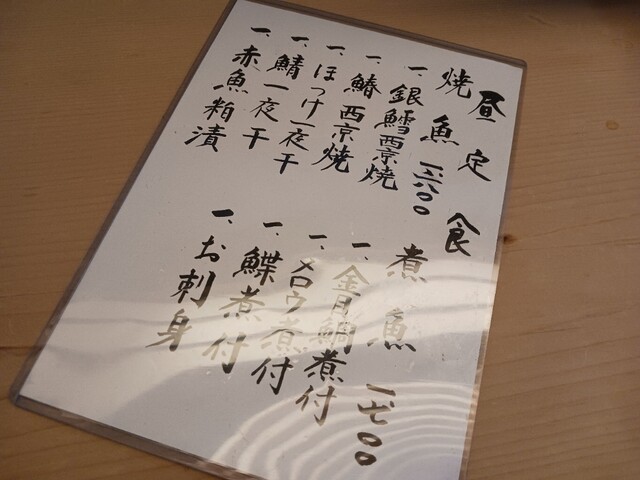 昼定食
焼魚 一六〇〇
一、銀鱈西京焼
一、鰆西京焼
一、ほっけ一夜干
一、鯖一夜干
一、赤魚粕漬
煮魚 一七〇〇
一、金目鯛煮付
一、メロウ煮付
一、鰈煮付
一、お刺身